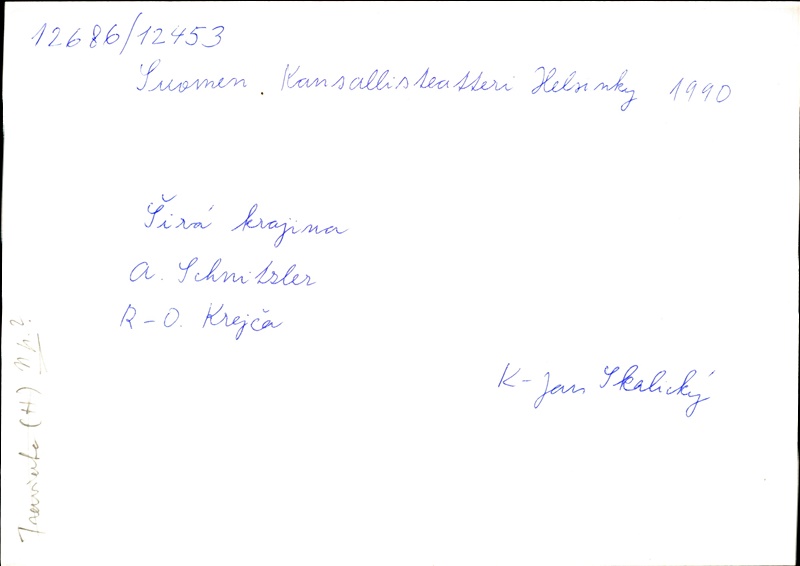 12686/12453
Suomen Kansallisteatteri Helsinky 1990
Širá krajina
A. Schnitzler
R-O. Krejča
K-Jan Skalický
(H)